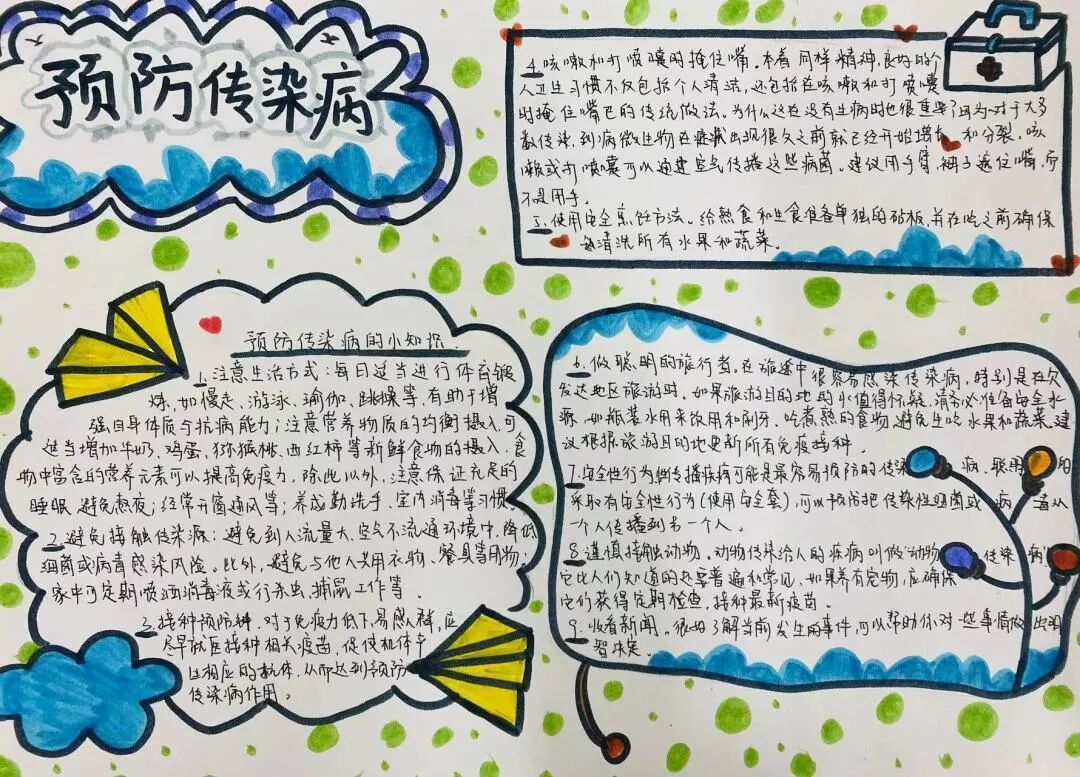 预防传染病
预防传染病的小知识
1、注意生活方式:每日适当进行体育锻
炼,如慢走、游泳、瑜伽、跳操等,有助于增
强自身体质与抗病能力;注意营养物质的均衡摄入,可
适当增加牛奶、鸡蛋、猕猴桃、西红柿等新鲜食物的摄入,食
物中富含的营养元素可以提高免疫力。除此以外,注意保证充足的
睡眠,避免熬夜;经常开窗通风等;养成勤洗手、室内消毒等习惯。
2、避免接触传染源:避免到人流量大、空气不流通环境中,降低
细菌或病毒感染风险。此外,避免与他人共用衣物、餐具等用物;
家中可定期喷洒消毒液或行杀虫、捕鼠工作等。
3、接种预防种,对于免疫力低下易感人群,应
尽早就医接种相关疫苗,促使机体产
生相应的抗体,从而达到预防
传染病作用。
4.咳嗽和打喷嚏时掩住嘴。本着同样精神,良好的个
人卫生习惯不仅包括个人清洁,还包括在咳嗽和打喷嚏
时掩住嘴巴的传统做法。为什么这在没有生病时也很重要?因为对于大多
数传染,到病微生物在症状出现很久之前就已经开始增长和分裂。咳
嗽或打喷嚏可以通过空气传播这些病菌。建议用手臂,袖子遮住嘴,而
不是用手。
5、使用安全烹饪方法。给熟食和生食准备单独的砧板,并在吃之前确保
清洗所有水果和蔬菜。
6、做聪明的旅行者。在旅途中很容易感染传染病,特别是在欠
发达地区旅游时。如果旅游目的地的水值得怀疑,请务必准备安全水
源,如瓶装水用来饮用和刷牙。吃煮熟的食物,避免生吃水果和蔬菜,建
议根据旅游目的地更新所有免疫接种。
7、安全性行为,性传播疾病可能是最容易预防的传染病,聪明
采取有安全性行为(使用安全套),可以预防把传染性细菌或病毒从
一个人传播到另一个人。
8、谨慎接触动物。动物传染给人的疾病叫做"动物传染病"
它比人们知道的还要普遍和常见,如果养有宠物,应确保
它们获得定期检查,接种最新疫苗。
9、收看新闻。很好了解当前发生的事件,可以帮助你对一些事情做出明
智决定。